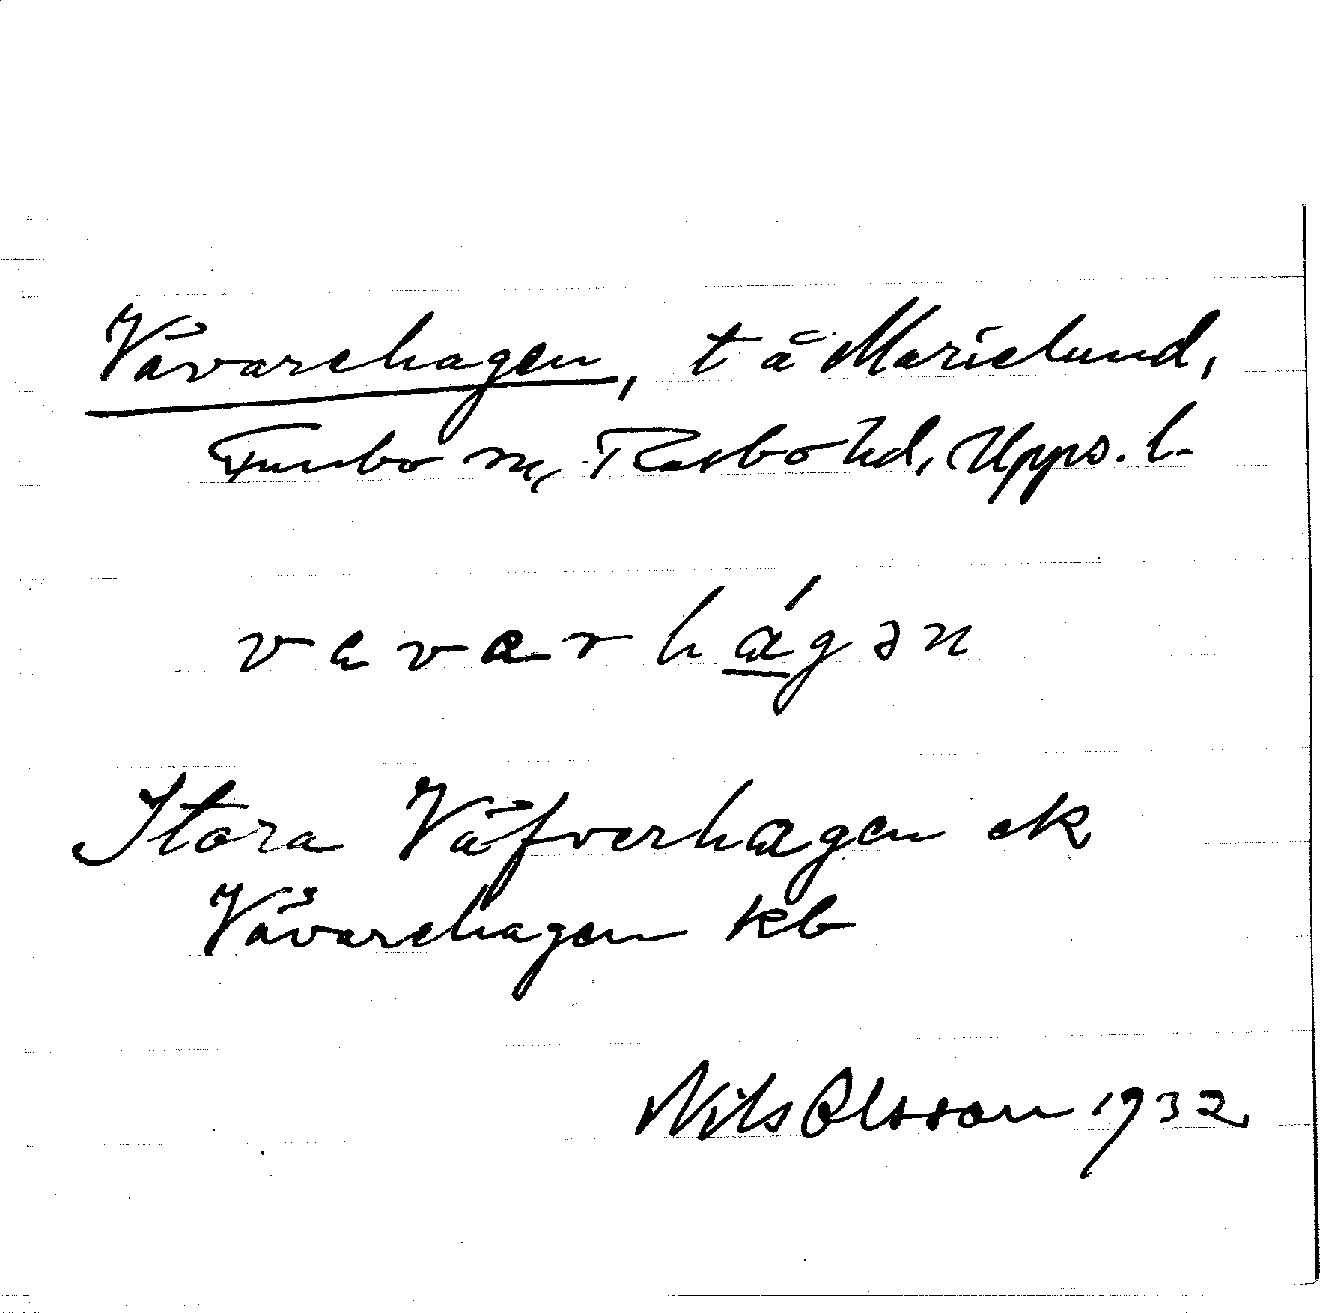 Vävarehagen, t å Marielund,
Funbo sn, Rasbo hd, Upps. l.
vavarhágən
Stora Väfverhagen ek
Vävarehagen kb
Nils Olsson 1932